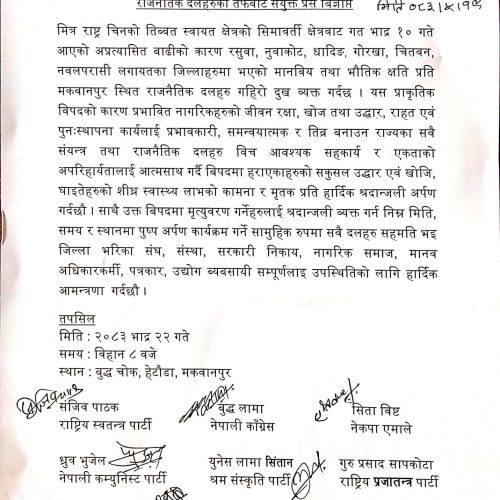 राजनैतिक दलहरुको तर्फवाट संयुक्त प्रेस विज्ञप्ति
मिति २०८३।५।१९
मित्र राष्ट्र चिनको तिब्बत स्वायत क्षेत्रको सिमावर्ती क्षेत्रवाट गत भाद्र १० गते
आएको अप्रत्यासित बाढीको कारण रसुवा, नुवाकोट, धादिङ, गोरखा, चितवन,
नवलपरासी लगायतका जिल्लाहरुमा भएको मानविय तथा भौतिक क्षति प्रति
मकवानपुर स्थित राजनैतिक दलहरु गहिरो दुख व्यक्त गर्दछ । यस प्राकृतिक
विपदको कारण प्रभावित नागरिकहरुको जीवन रक्षा, खोज तथा उद्धार, राहत एवं
पुनःस्थापना कार्यलाई प्रभावकारी, समन्वयात्मक र तिब्र बनाउन राज्यका सबै
संयन्त्र तथा राजनैतिक दलहरु विच आवश्यक सहकार्य र एकताको
अपरिहार्यतालाई आत्मसाथ गर्दै बिपदमा हराएकाहरुको सकुसल उद्धार एवं खोजि,
घाइतेहरुको शीघ्र स्वास्थ्य लाभको कामना र मृतक प्रति हार्दिक श्रदान्जली अर्पण
गर्दछौ । साथै उक्त बिपदमा मृत्युवरण गर्नेहरुलाई श्रदान्जली ब्यक्त गर्न निम्न मिति,
समय र स्थानमा पुष्प अर्पण कार्यक्रम गर्ने सामुहिक रुपमा सवै दलहरु सहमति भइ
जिल्ला भरिका संघ, संस्था, सरकारी निकाय, नागरिक समाज, मानव
अधिकारकर्मी, पत्रकार, उद्योग ब्यबसायी सम्पूर्णलाइ उपस्थितिको लागि हार्दिक
आमन्त्रणा गर्दछौ ।
तपसिल
मिति : २०८३ भाद्र २२ गते
समय : विहान ८ वजे
स्थान : बुद्ध चोक, हेटौडा, मकवानपुर
संजिव पाठक बुद्ध लामा सिता विष्ट
राष्ट्रिय स्वतन्त्र पार्टी नेपाली काँग्रेस नेकपा एमाले
ध्रुव भुजेल युनेस लामा सिंतान गुरु प्रसाद सापकोटा
नेपाली कम्युनिस्ट पार्टी श्रम संस्कृति पार्टी राष्ट्रिय प्रजातन्त्र पार्टी